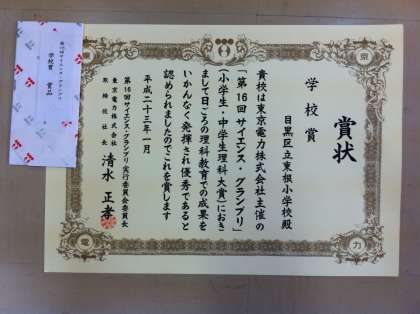 賞状
学校賞
目黒区立東根小学校殿
貴校は東京電力株式会社主催の
「第16回 サイエンス・グランプリ」
(小学生・中学生理科大賞)におき
まして日ごろの理科教育での成果を
いかんなく発揮され優秀であると
認められましたのでこれを賞します
平成二十三年一月
第16回サイエンス・グランプリ実行委員会委員長
東京電力株式会社
取締役社長 清水正孝
東
京
電
力
第16回サイエンス・グランプリ
学校賞 賞品